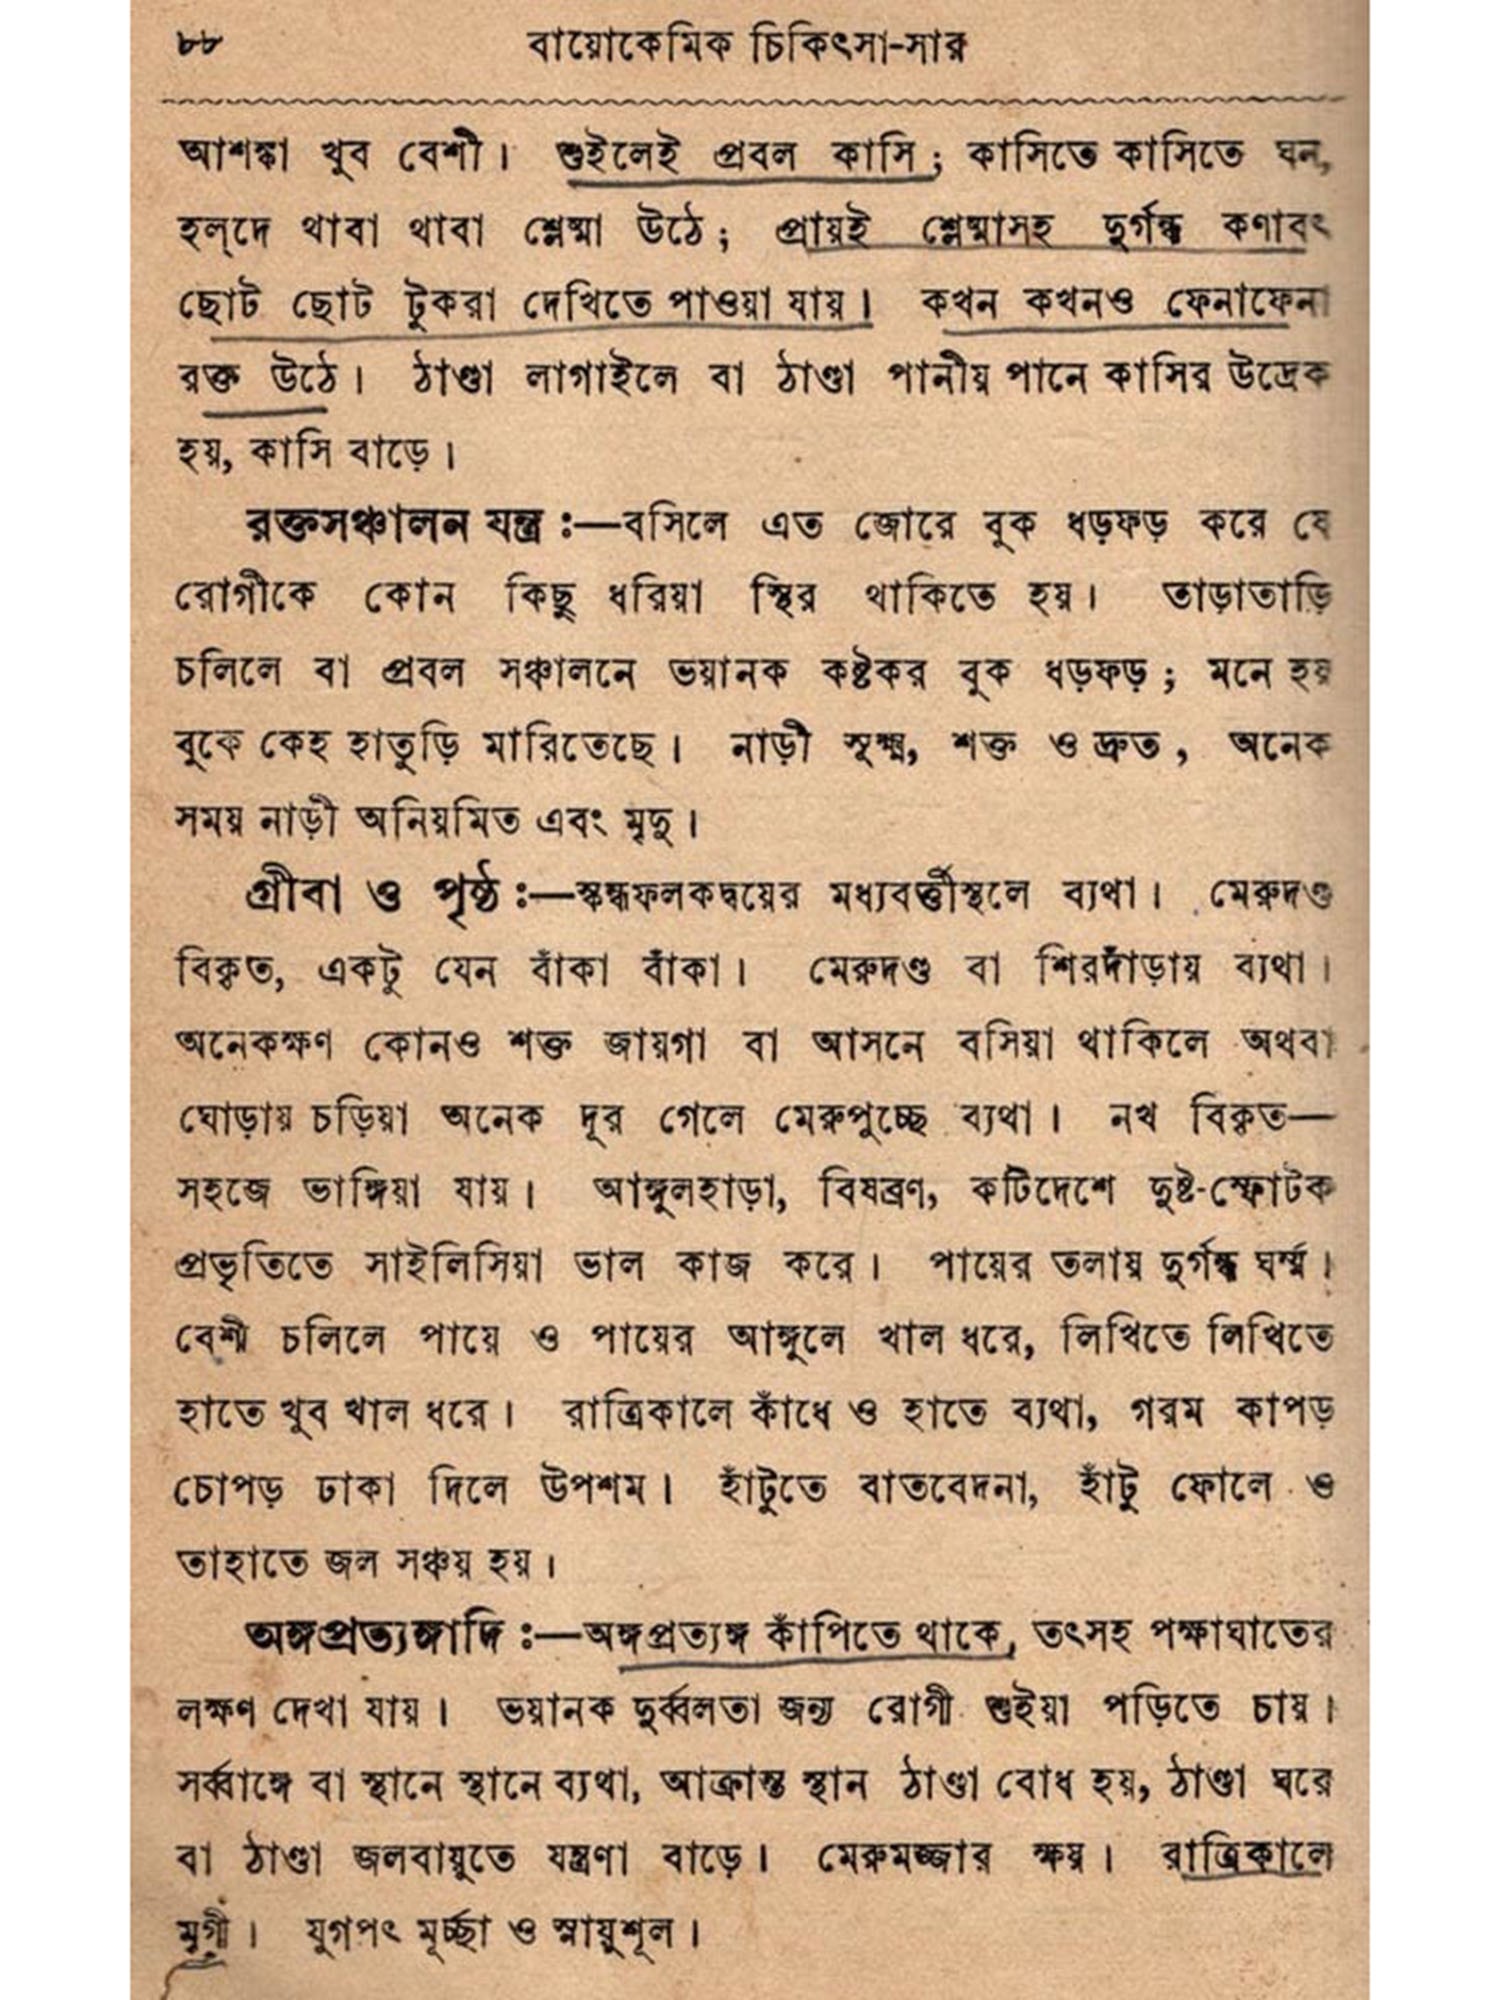 ৮৮
বায়োকেমিক চিকিৎসা-সার
আশঙ্কা খুব বেশী। শুইলেই প্রবল কাসি; কাসিতে কাসিতে ঘন,
হল্‌দে থাবা থাবা শ্লেষ্মা উঠে; প্রায়ই শ্লেষ্মাসহ দুর্গন্ধ কণাবৎ
ছোট ছোট টুকরা দেখিতে পাওয়া যায়। কখন কখনও ফেনাফেনা
রক্ত উঠে। ঠাণ্ডা লাগাইলে বা ঠাণ্ডা পানীয় পানে কাসির উদ্রেক
হয়, কাসি বাড়ে।
রক্তসঞ্চালন যন্ত্র ঃ—বসিলে এত জোরে বুক ধড়ফড় করে যে
রোগীকে কোন কিছু ধরিয়া স্থির থাকিতে হয়। তাড়াতাড়ি
চলিলে বা প্রবল সঞ্চালনে ভয়ানক কষ্টকর বুক ধড়ফড়; মনে হয়
বুকে কেহ হাতুড়ি মারিতেছে। নাড়ী সূক্ষ্ম, শক্ত ও দ্রুত, অনেক
সময় নাড়ী অনিয়মিত এবং মৃদু।
গ্রীবা ও পৃষ্ঠ ঃ—স্কন্ধফলকদ্বয়ের মধ্যবর্ত্তীস্থলে ব্যথা। মেরুদণ্ড
বিকৃত, একটু যেন বাঁকা বাঁকা। মেরুদণ্ড বা শিরদাঁড়ায় ব্যথা।
অনেকক্ষণ কোনও শক্ত জায়গা বা আসনে বসিয়া থাকিলে অথবা
ঘোড়ায় চড়িয়া অনেক দূর গেলে মেরুপুচ্ছে ব্যথা। নখ বিকৃত—
সহজে ভাঙ্গিয়া যায়। আঙ্গুলহাড়া, বিষব্রণ, কটিদেশে দুষ্ট-স্ফোটক
প্রভৃতিতে সাইলিসিয়া ভাল কাজ করে। পায়ের তলায় দুর্গন্ধ ঘর্ম্ম।
বেশী চলিলে পায়ে ও পায়ের আঙ্গুলে খাল ধরে, লিখিতে লিখিতে
হাতে খুব খাল ধরে। রাত্রিকালে কাঁধে ও হাতে ব্যথা, গরম কাপড়
চোপড় ঢাকা দিলে উপশম। হাঁটুতে বাতবেদনা, হাঁটু ফোলে ও
তাহাতে জল সঞ্চয় হয়।
অঙ্গপ্রত্যঙ্গাদি ঃ—অঙ্গপ্রত্যঙ্গ কাঁপিতে থাকে, তৎসহ পক্ষাঘাতের
লক্ষণ দেখা যায়। ভয়ানক দুর্ব্বলতা জন্য রোগী শুইয়া পড়িতে চায়।
সর্ব্বাঙ্গে বা স্থানে স্থানে ব্যথা, আক্রান্ত স্থান ঠাণ্ডা বোধ হয়, ঠাণ্ডা ঘরে
বা ঠাণ্ডা জলবায়ুতে যন্ত্রণা বাড়ে। মেরুমজ্জার ক্ষয়। রাত্রিকালে
মৃগী। যুগপৎ মূর্চ্ছা ও স্নায়ুশূল।